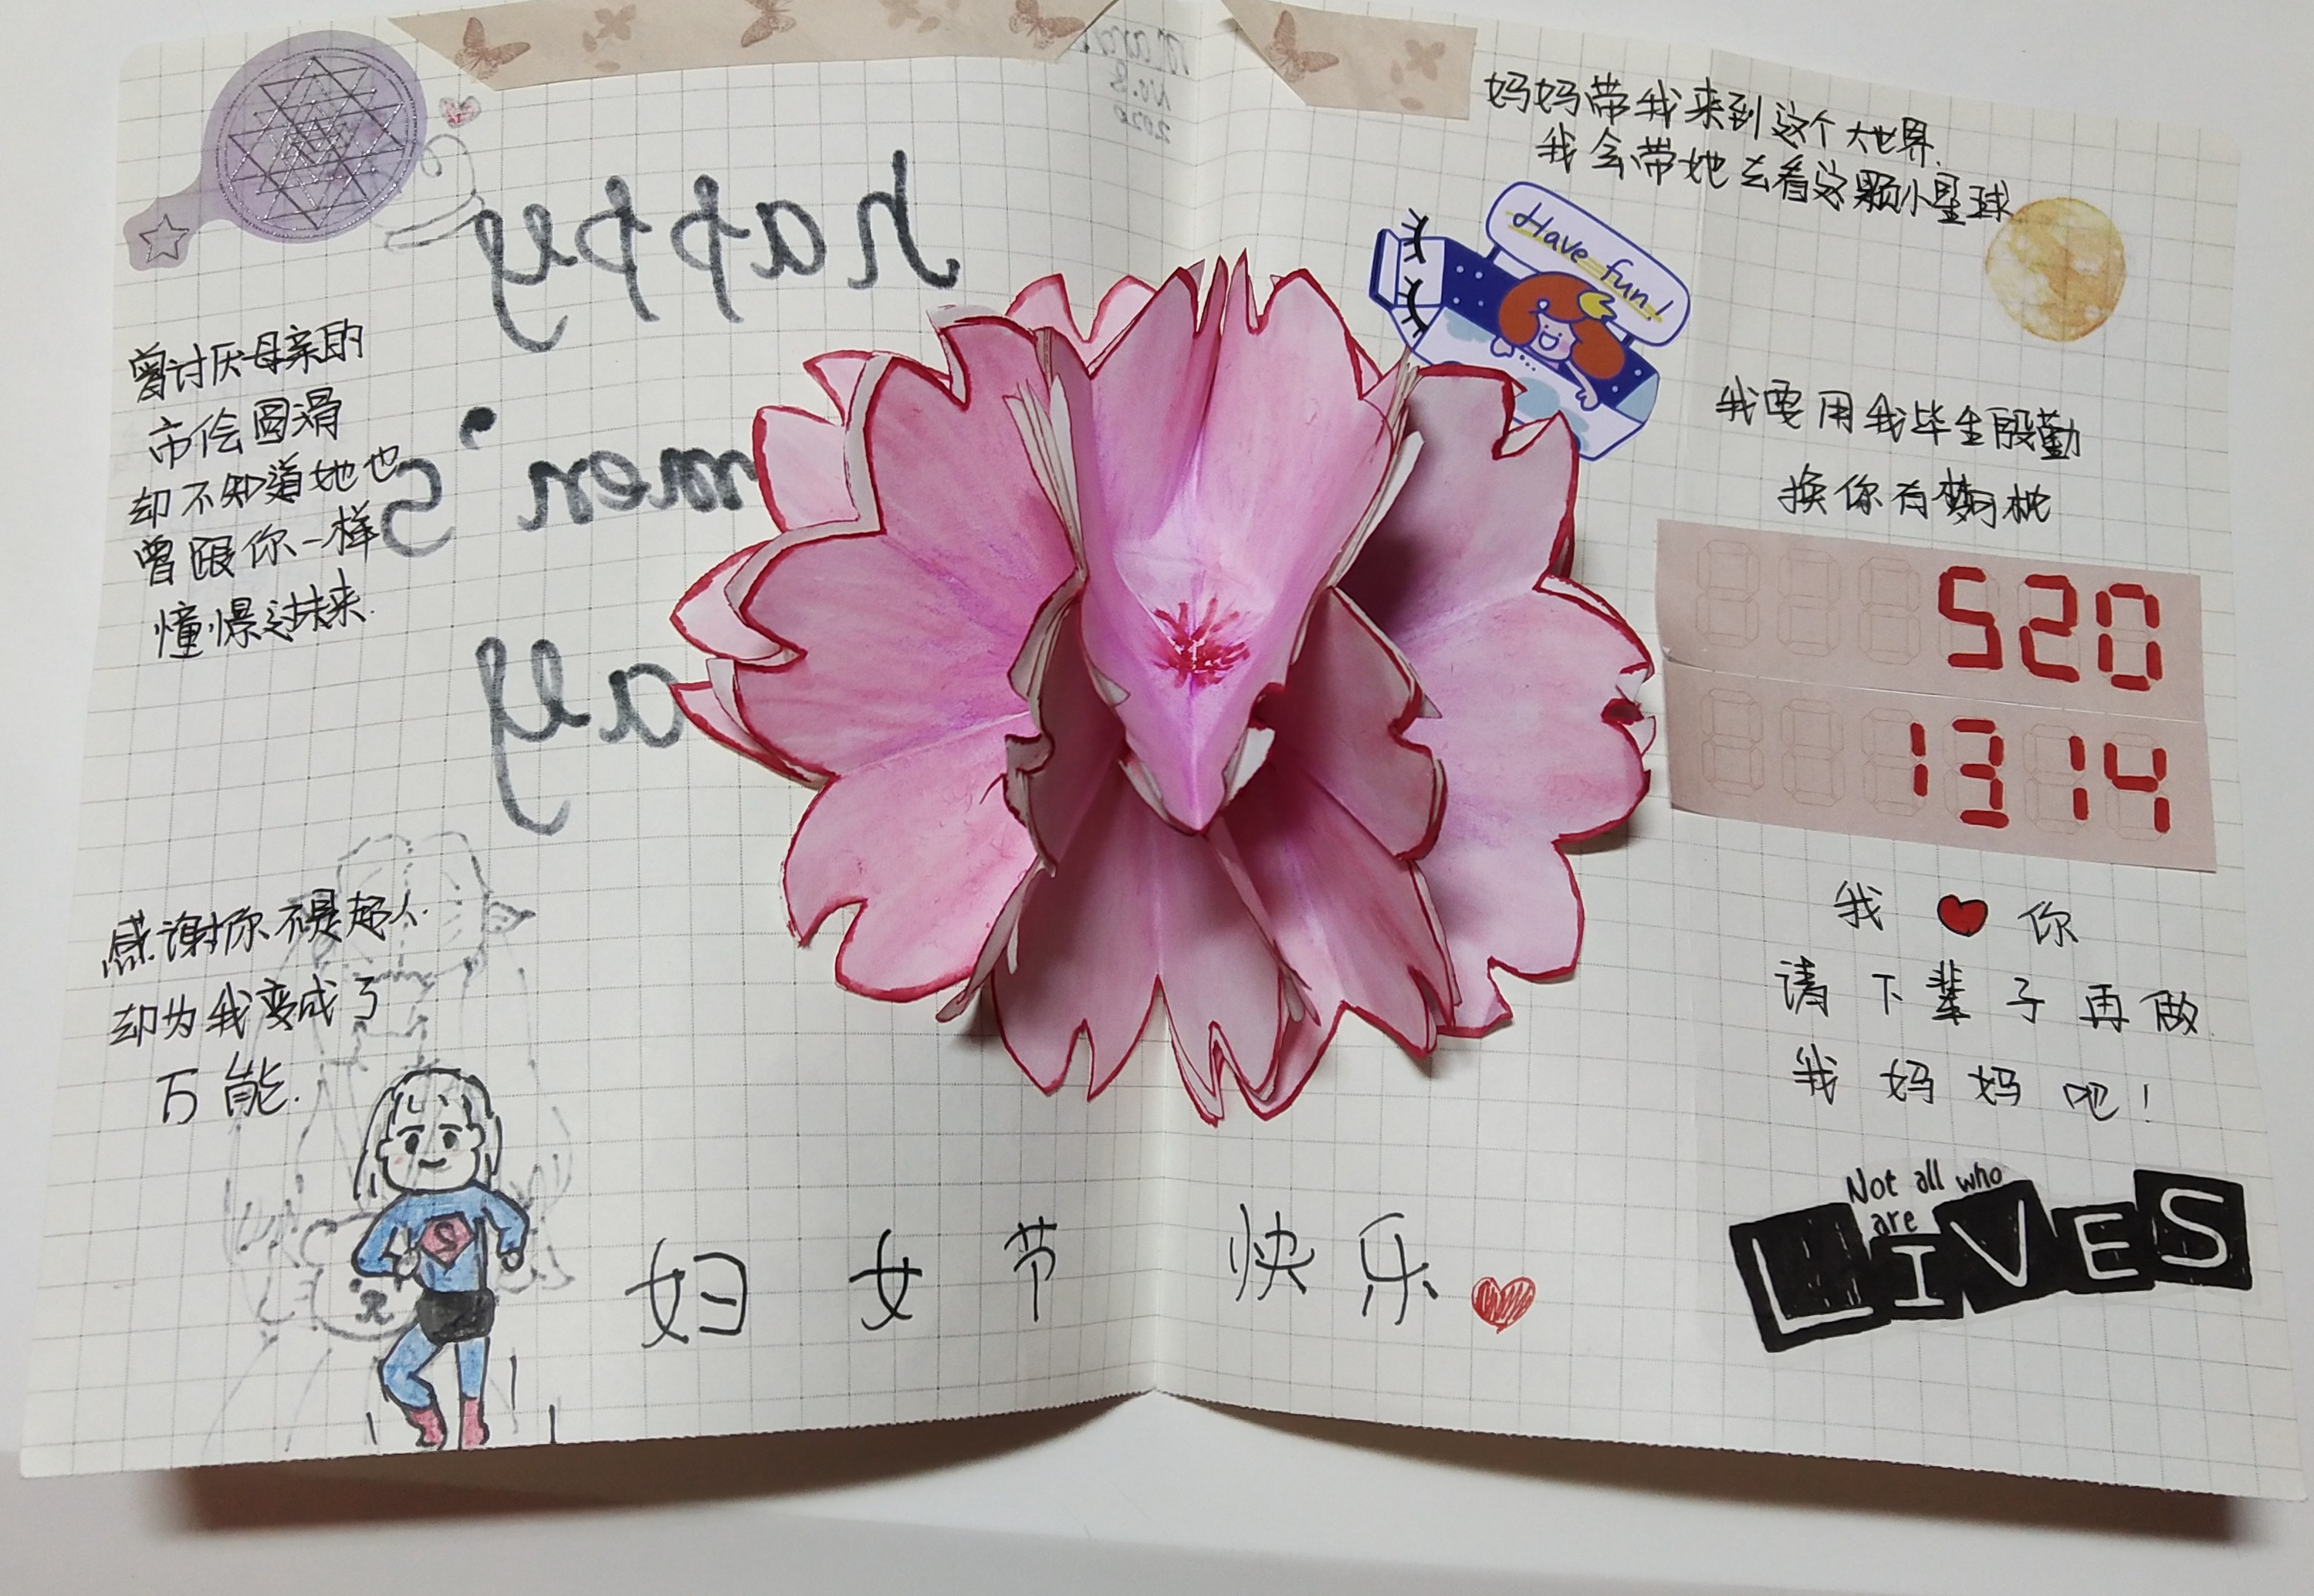 曾讨厌母亲的
市侩圆滑
却不知道她也
曾跟你一样
憧憬过未来.
感谢你不是超人.
却为我变成了
万能.
S
妇女节快乐
妈妈带我来到这个大世界.
我会带她去看这颗小星球
Have fun!
我要用我毕生殷勤
换你有梦可枕
520
1314
我❤你
请下辈子再做
我妈妈吧!
Not all who
are
LIVES
happy
men's
ay
March
No.8
2020